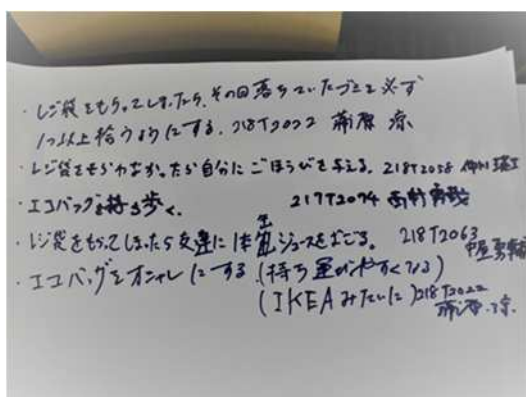 ・レジ袋をもらってしまったら、その回落ちていたゴミを必ず
1つ以上拾うようにする。218T2022 蒲原 涼
・レジ袋をもらわなかったら自分にごほうびを与える。218T2058
・エコバックを持ち歩く。 217T2074 西村
・レジ袋をもらってしまったら友達に1本生ジュースをおごる。 218T2063
・エコバッグをオシャレにする(持ち運びがやすくなる)
(IKEAみたいに)218T2022
蒲原 涼